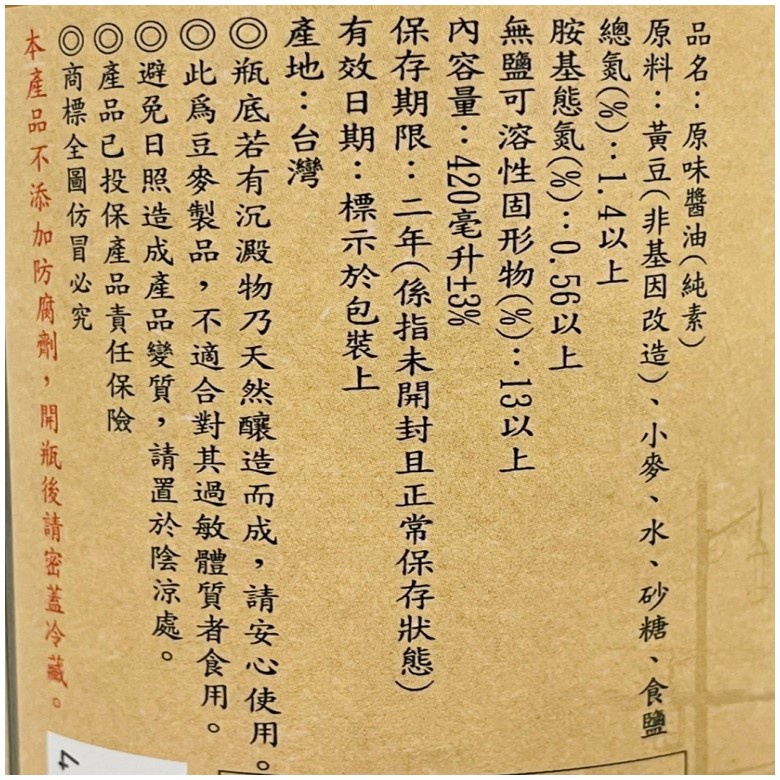 品名：原味醬油(純素)
原料：黃豆(非基因改造)、小麥、水、砂糖、食鹽
總氮(%)：1.4以上
胺基態氮(%)：0.56以上
無鹽可溶性固形物(%)：13以上
內容量：420毫升±3%
保存期限：二年(係指未開封且正常保存狀態)
有效日期：標示於包裝上
產地：台灣
◎瓶底若有沉澱物乃天然釀造而成，請安心使用。
◎此為豆麥製品，不適合對其過敏體質者食用。
◎避免日照造成產品變質，請置於陰涼處。
◎產品已投保產品責任保險
◎商標全圖仿冒必究
本產品不添加防腐劑，開瓶後請密蓋冷藏。
4